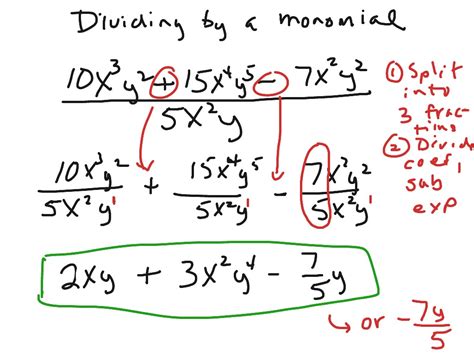 Dividing by a monomial
10x³y² + 15x⁴y⁵ − 7x²y²
5x²y
① Split
into
3 frac
tions
② Divide
coef,
sub
exp
10x³y² + 15x⁴y⁵ − 7x²y²
5x²y¹ 5x²y¹ 5x²y¹
2xy + 3x²y⁴ − 7/5 y
↳ or −7y/5